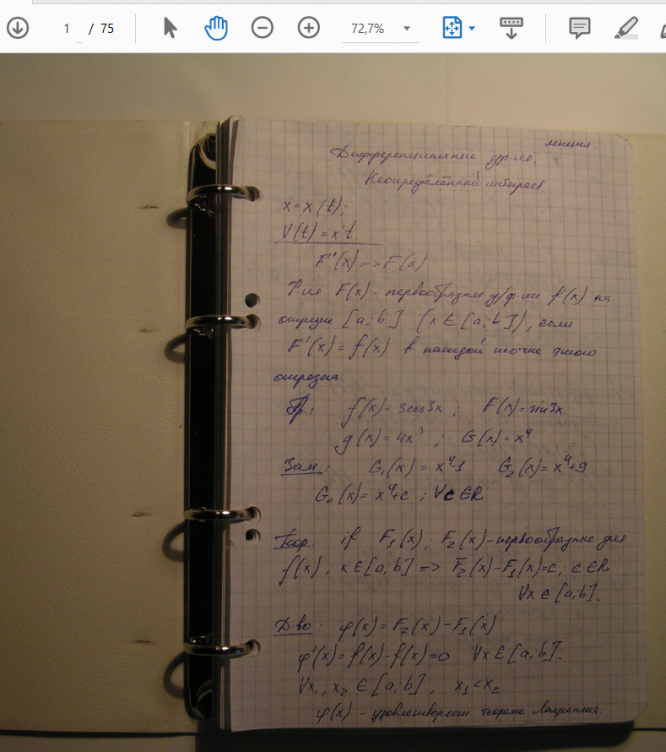 1 / 75 72,7%
лекция.
Дифференциальные ур-ие.
Неопределённый интеграл
x = x(t);
V(t) = x't
F'(x) => F(x)
Ф-ия F(x) - первообразная д/ф-ии f(x) на
отрезке [a;b] (x∈[a;b]), если
F'(x) = f(x) в каждой точке этого
отрезка.
Пр.: f(x) = 3cos3x ; F(x) = sin3x
g(x) = 4x³ ; G(x) = x⁴
Зам.: G₁(x) = x⁴+1 G₂(x) = x⁴+9
Gc(x) = x⁴+c ; ∀c∈R
Теор. if F₁(x); F₂(x) - первообразные для
f(x), x∈[a,b] => F₂(x)-F₁(x)=c, c∈R
∀x∈[a,b].
Д-во: φ(x) = F₂(x) - F₁(x)
φ'(x) = f(x) - f(x) = 0 ∀x∈[a;b].
∀x₁, x₂ ∈ [a;b], x₁ < x₂
φ(x) - удовлетворяет теореме Лагранжа: